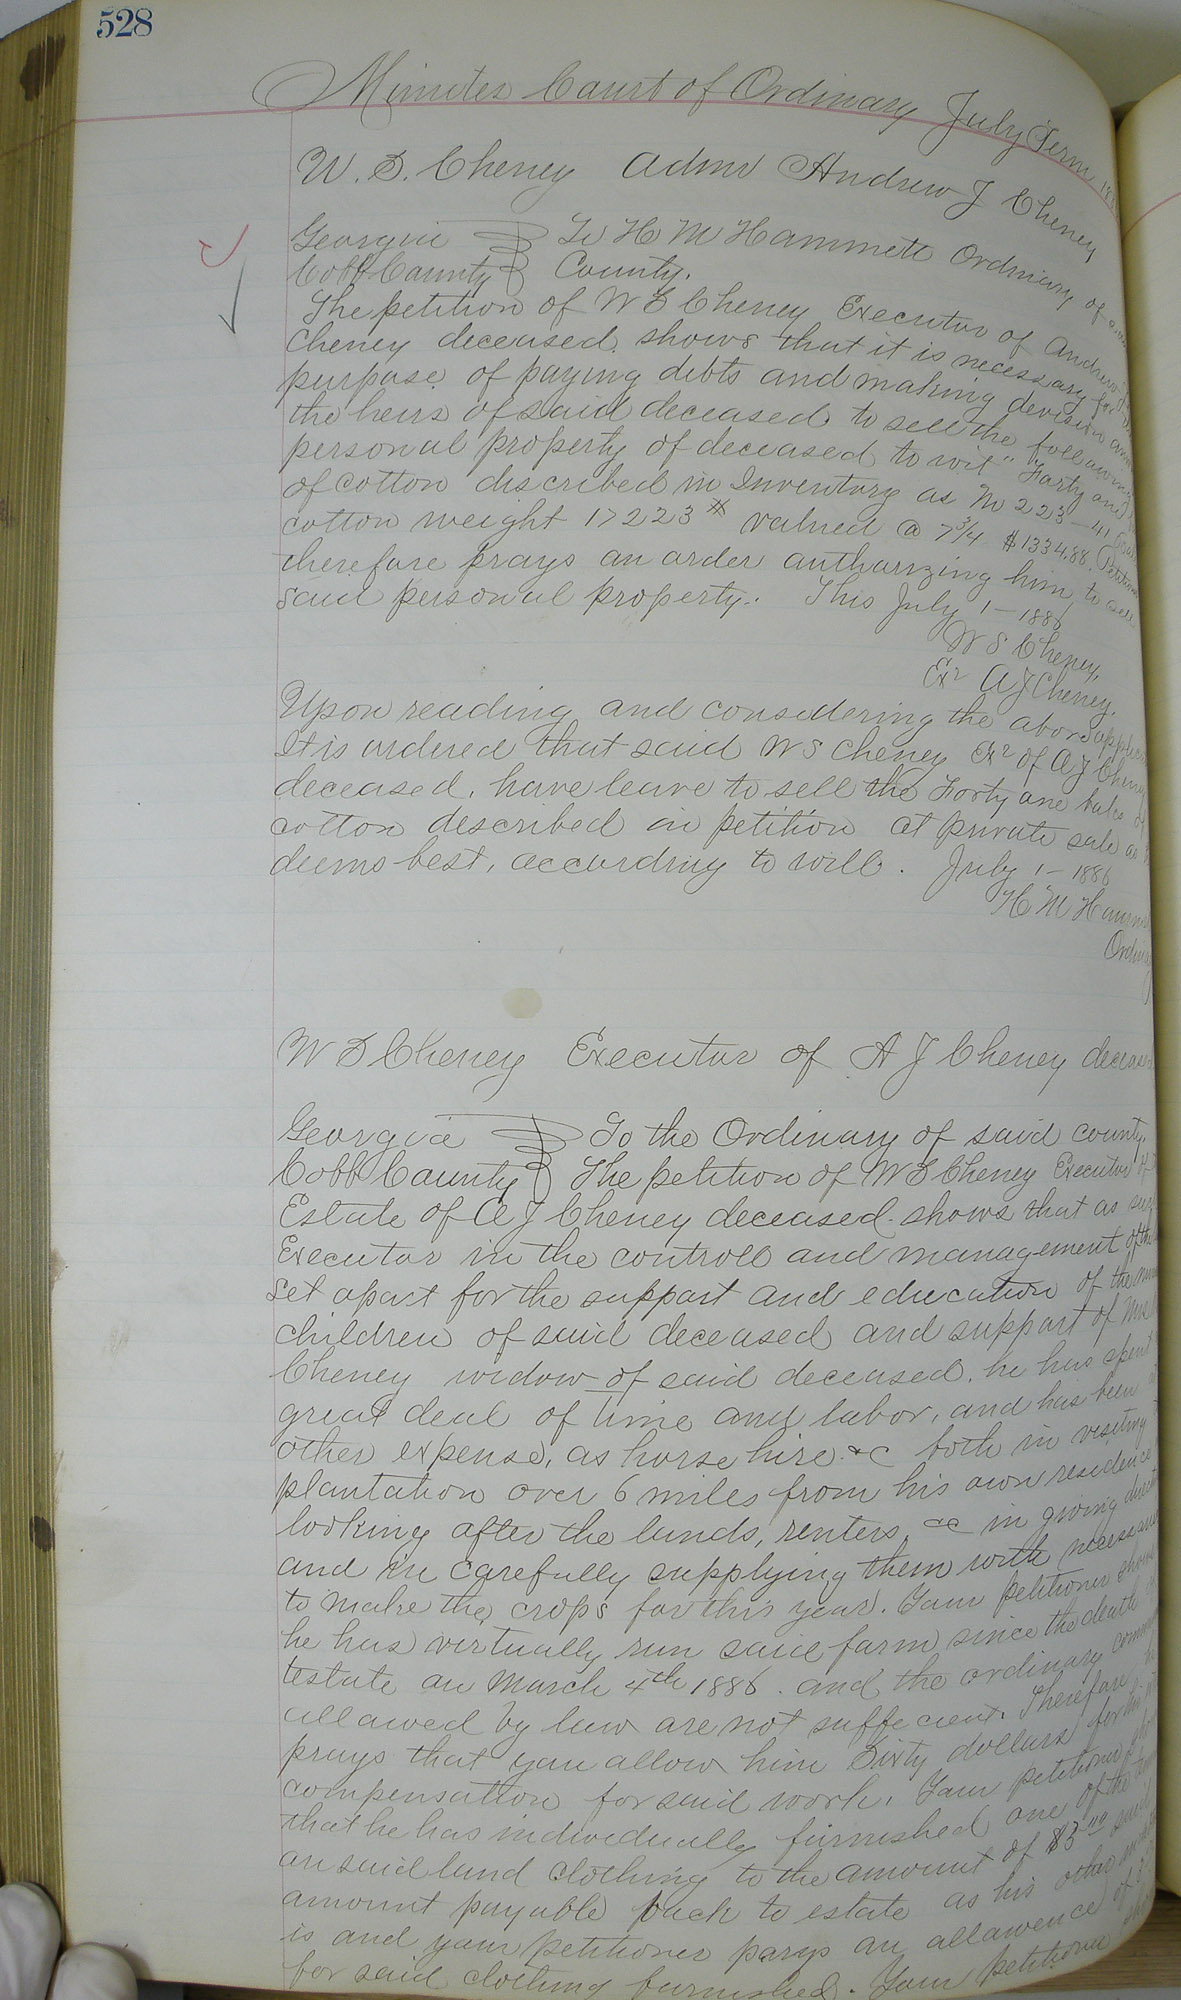 528
Minutes Court of Ordinary July Term
W. S. Cheney Admr Andrew J Cheney
Georgia } To H M Hammett Ordinary of
Cobb County } County.
The petition of W S Cheney Executor of Andrew
Cheney deceased. shows that it is necessary for
purpose of paying debts and making devision
the heirs of said deceased to sell the following
personal property of deceased to wit "Forty and
of cotton discribed in Inventory as No 223 - 41
cotton weight 17223 # valued @ 7 3/4 $1334.88.
therefore prays an order authorizing him to sell
said personal property. This July 1 - 1886
W S Cheney,
Exr A J Cheney.
Upon reading and considering the above
It is ordered that said W S Cheney Exr of A J Cheney
deceased, have leave to sell the Forty one bales
cotton described in petition at private sale as
deems best, according to will. July 1 - 1886
H M
W S Cheney Executor of A J Cheney
Georgia } To the Ordinary of said county.
Cobb County } The petition of W S Cheney Executor
Estate of A J Cheney deceased. shows that as
Executor in the controll and management of the
set apart for the support and education of the
children of said deceased and support of Mrs
Cheney widow of said deceased. he has spent
great deal of time and labor, and has been
other expense, as horse hire &c both in visiting
plantation over 6 miles from his own residence
looking after the lands, renters, &c in giving
and in carefully supplying them with
to make the crops for this year. Your petitioner
he has virtually run said farm since the death
testate on March 4th 1886. and the ordinary
allowed by law are not sufficient. Therefore
prays that you allow him Sixty dollars for
compensation for said work. Your petitioner
that he has individually furnished one of the
on said land clothing to the amount of $3 00 said
amount payable back to estate as his other
is and your petitioner parys an allowence of
for said clothing furnished. Your petitioner